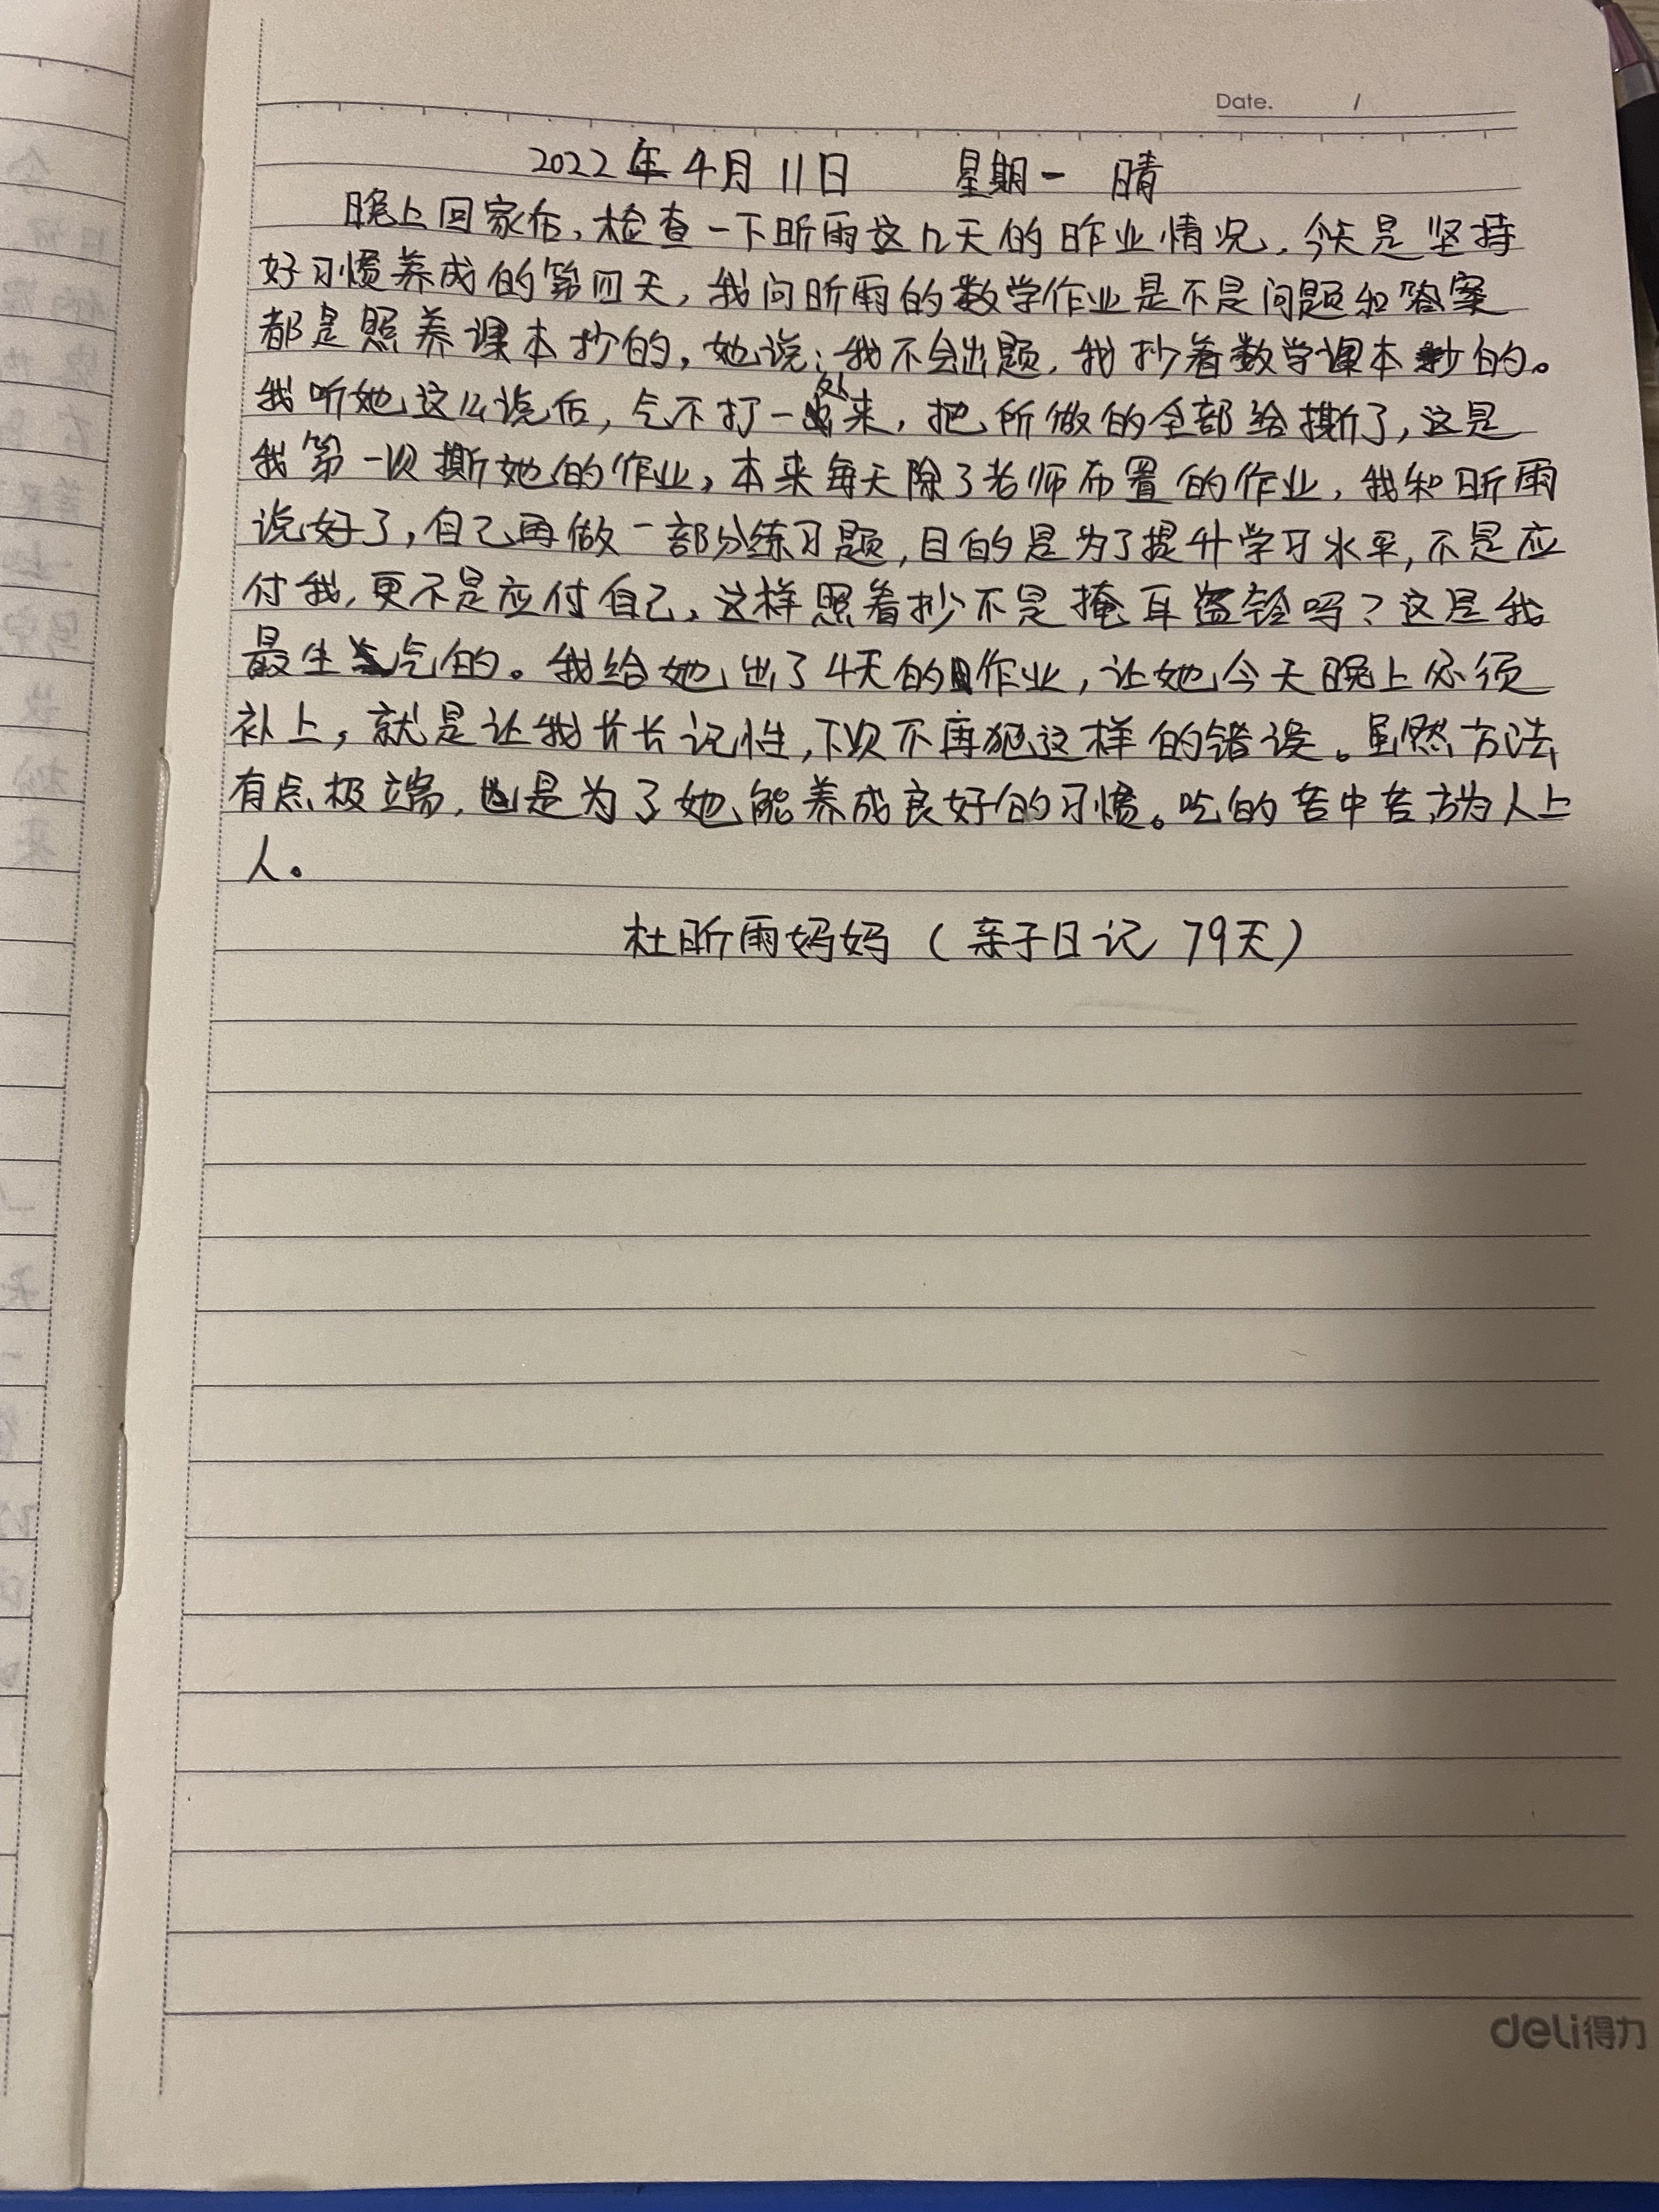 Date. /
2022年4月11日 星期一 晴
晚上回家后，检查一下昕雨这几天的昨业情况，今天是坚持
好习惯养成的第四天，我问昕雨的数学作业是不是问题和答案
都是照养课本抄的，她说：我不会出题，我抄着数学课本抄的。
我听她这么说后，气不打一处来，把所做的全部给撕了，这是
我第一次撕她的作业，本来每天除了老师布置的作业，我和昕雨
说好了，自己再做一部分练习题，目的是为了提升学习水平，不是应
付我，更不是应付自己，这样照着抄不是掩耳盗铃吗？这是我
最生气的。我给她出了4天的作业，让她今天晚上必须
补上，就是让我长长记性，下次不再犯这样的错误。虽然方法
有点极端，也是为了她能养成良好的习惯。吃的苦中苦，方为人上
人。
杜昕雨妈妈（亲子日记 79天）
deli得力